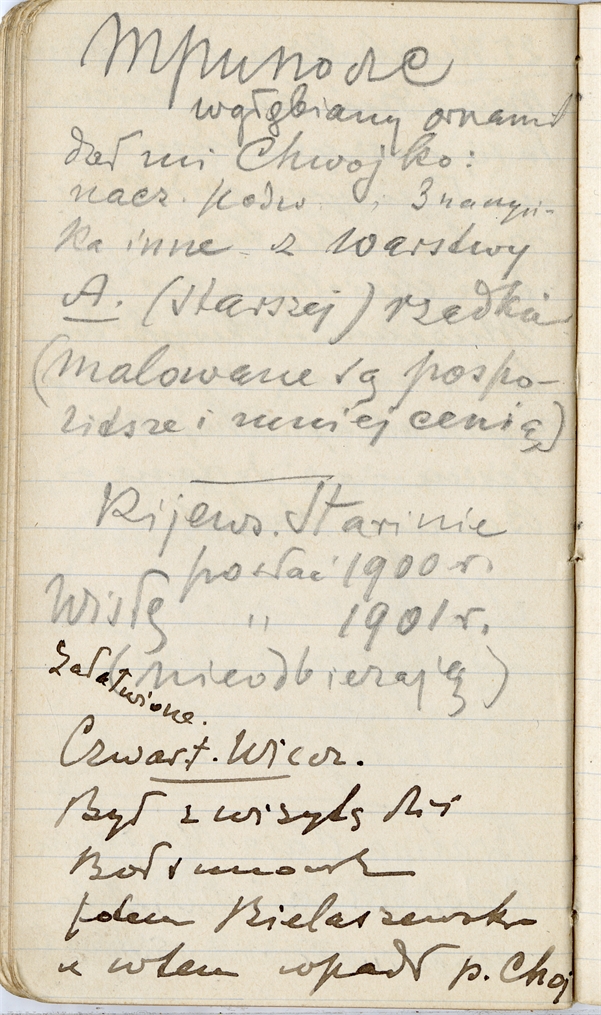 Триполье
wgłębiany ornam
dał mi Chwojko:
nacz.
ka inne z warstwy
A. (starszej) rzadkie
(malowane są pospo-
litsze i mniej cenią)
Kijews. Starinie
posłać 1900 r.
Wisłę " 1901 r.
(nieodbierają)
Załatwione.
Czwart. Wiecz.
Był z wizytą dziś
potem Bielaszewski
a wtem wpadł p. Choj